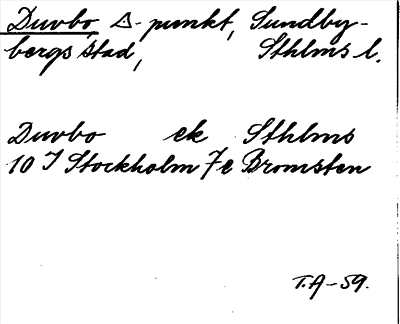 Duvbo △-punkt, Sundby-
bergs stad, Sthlms l.
Duvbo ek Sthlms
10 I Stockholm 7e Bromsten
T.A-59.